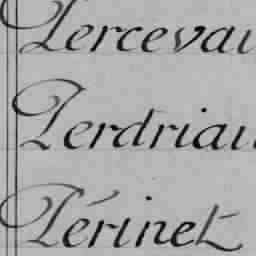 Percevau
Perdriau
Périnet